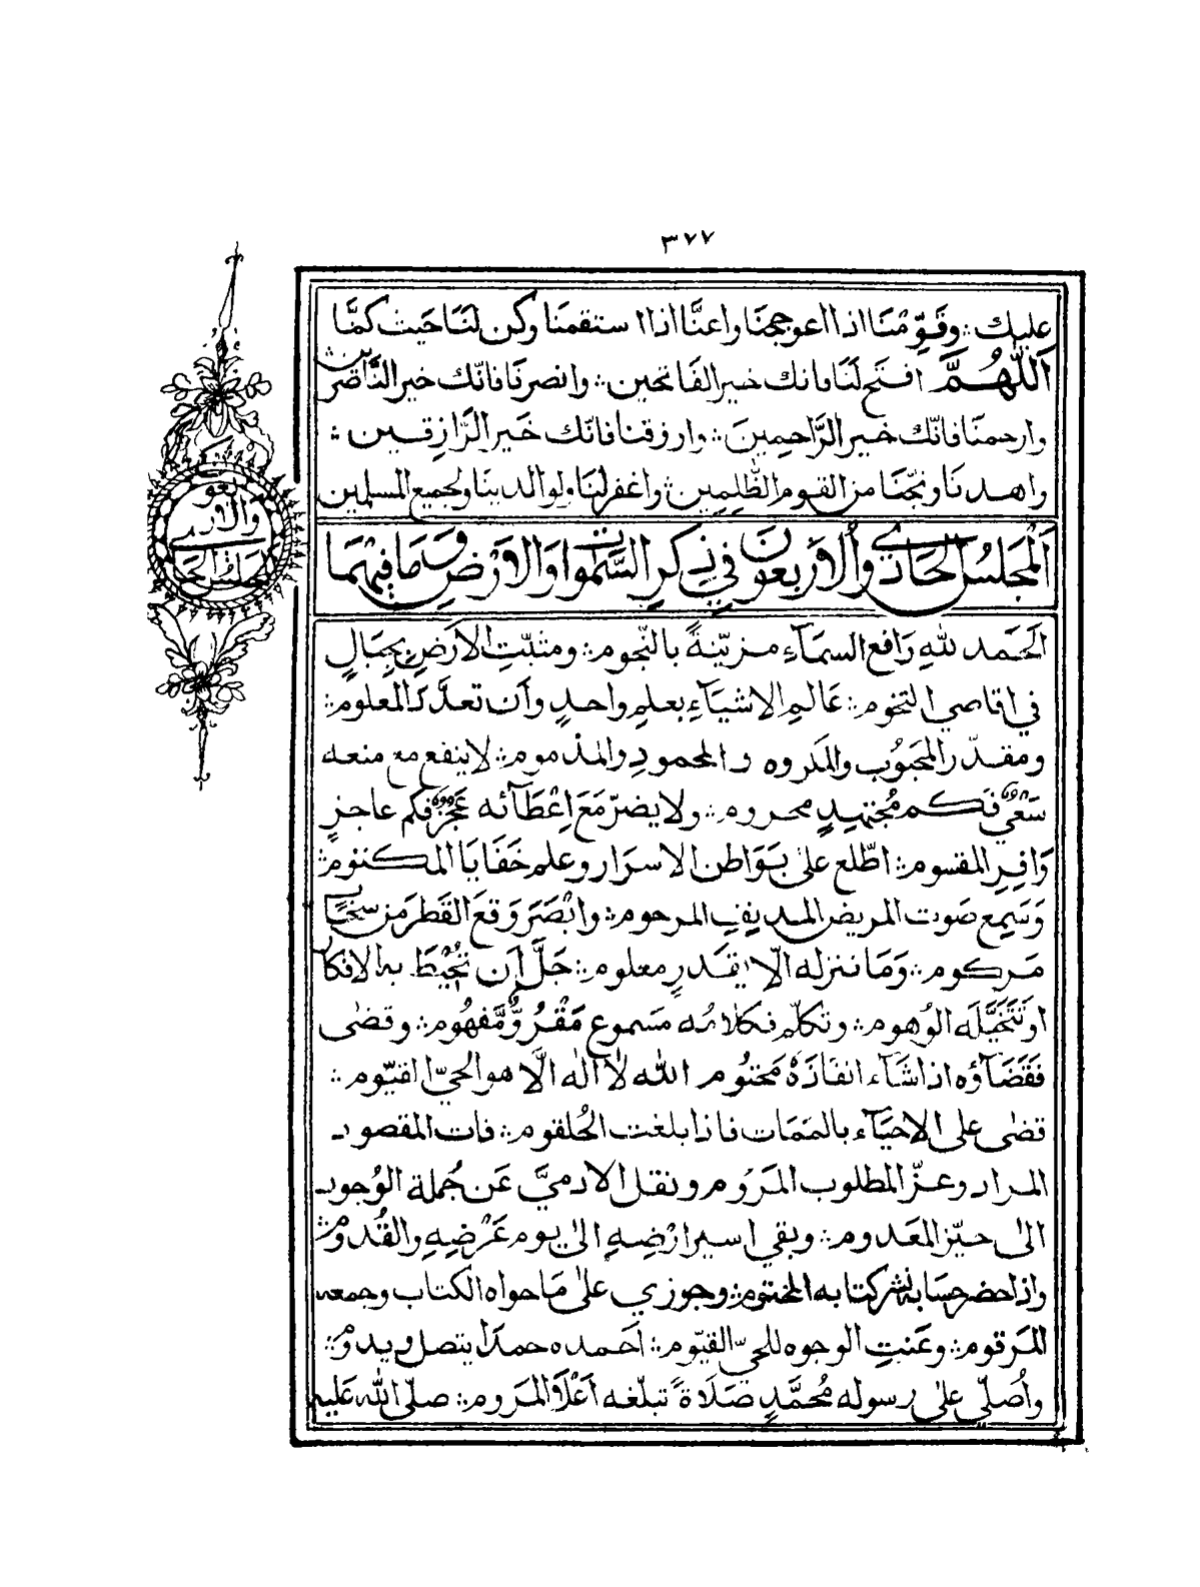 ٣٧٧
عليك ؞ وقَوِّمْنَا اذا اعوججنَا واعنَّا اذا استقمنَا وكن لنَا حَيث كنَّا
اَللّٰهُمَّ افتَح لَنَا فانك خير الفَاتحين ؞ وانصرنَا فانّك خير النَّاصرين
وارحمنَا فانّك خير الرَّاحمينَ ؞ وارزقنا فانّك خَير الرَّازقين ؞
واهدنَا ونجّنَا من القوم الظّٰلِمِين ؞ واغفر لنَا ولوالدينَا ولجميع المسلمين
اَلمَجلسُ الحَادي وَالاَربعون في ذِكرِ السَّمٰوات وَالاَرْضِ وَمَا فيْهِمَا
المجلسُ الحَا
والار
بعو
اَلحَمد للهِ رَافع السمَآءِ مزيّنةً بالنّجوم ؞ ومثبّتِ الارَضِ بِجبَالٍ
في اقاصي التخوم ؞ عَالمِ الاشيَآءِ بعلمٍ واحدٍ وَان تعدَّد المعلوم ؞
ومقدّر المحَبُوب والمكروه والمحمودِ والمذموم ؞ لا ينفع مع منعه
سَعْيٌ فكم مُجتهدٍ محروم ؞ ولا يضرّ مَعَ اِعْطَآئه عَجزٌ فكم عاجزٍ
وَافِرِ المقسوم ؞ اطّلع علىٰ بَوَاطن الاسرَار وعلم خَفَايَا المكتوم ؞
وَسَمِع صَوت المريض المدنِفِ المرحوم ؞ وابْصَرَ وَقعَ القَطر من سَحَابٍ
مَركوم ؞ وَمَا ننزله الّا بقَدَرٍ معلوم ؞ جَلَّ اَن تُحِيْطَ به الافكا
او تَتَخَيَّلَه الوُهوم ؞ وتكلّم فكلامُه مَسموع مَقْرُوٌّ وَّمَفهُوم ؞ وقضٰى
فَقَضَآؤُه اذا شَآء انفَاذَهٗ مَحتُوم الله لَا اله الّا هو الحيّ القيّوم ؞
قضٰى على الاحيَآء بالمَمَات فاذا بلغت الحُلقوم ؞ فات المقصود
المراد وعزّ المطلوب المَرُوم ونقل الادميَّ عَن جُملة الوُجود
الىٰ حيّز المعَدوم ؞ وبقي اسير ارْضِهِ الىٰ يوم عَرْضِهِ والقُدوم ؞
واذا حضر حسَابه نشر كتابه المختوم ؞ وجوزي علىٰ مَا حواه الكتاب وجمعه
المَرقوم ؞ وعَنتِ الوجوه للحيّ القيّوم ؞ اَحمده حمدًا يتصل ويدوم ؞
واُصلّي علىٰ رسوله مُحمَّدٍ صَلَاةً تبلّغه اَعْلَا المَروم ؞ صلّى الله عَليه